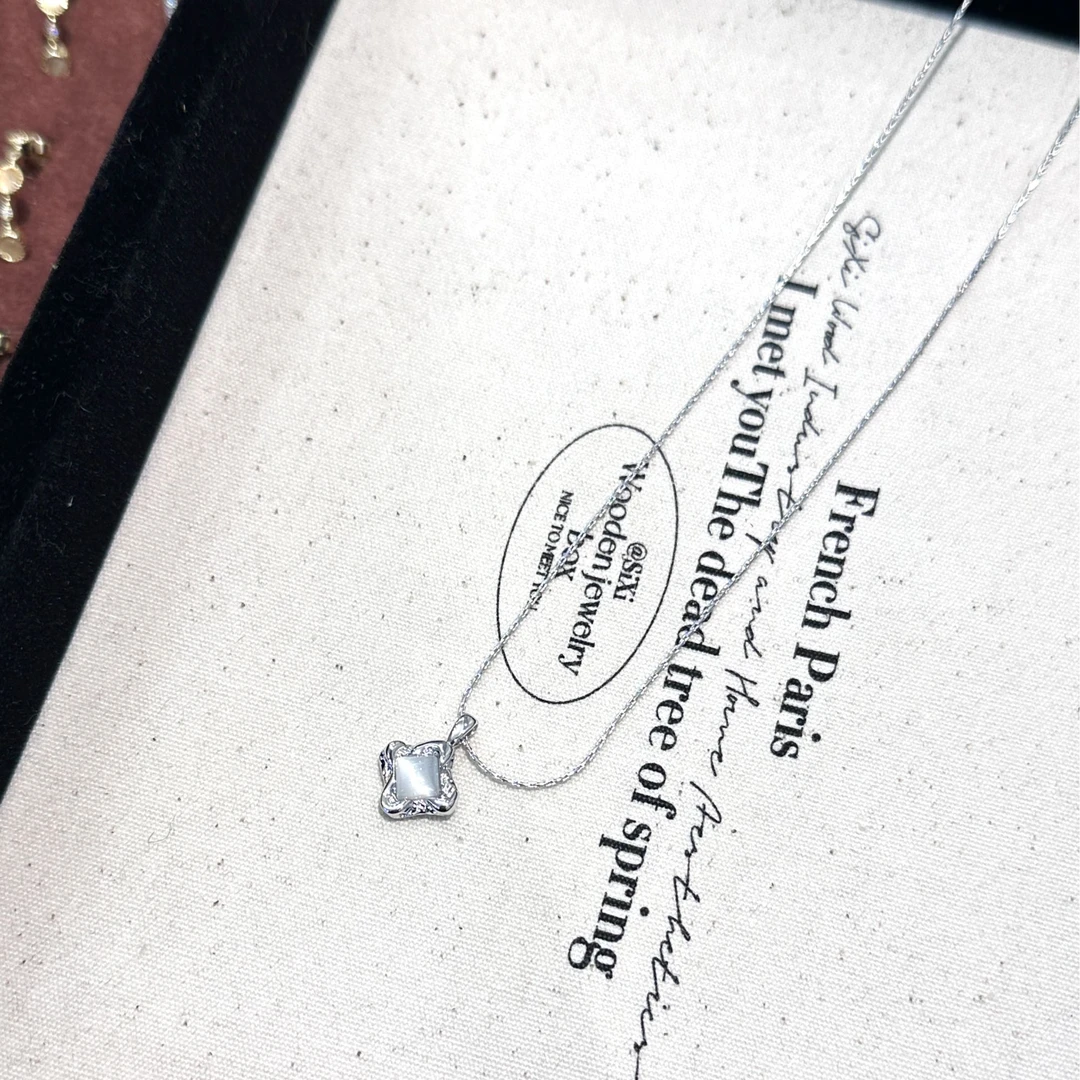 French Paris
SiXi Wood Industry and Home Aesthetics
I met youThe dead tree of spring
@SiXi
Wooden jewelry
box
NICE TO MEET YOU